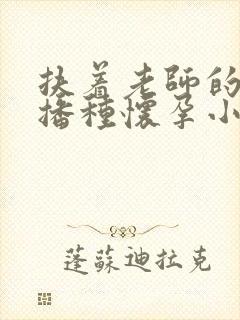 扶着老師的
播種懷孕小
蓬蘇迪拉克